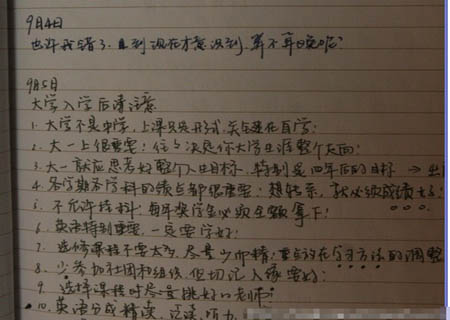 9月4日
也许我错了.直到现在才意识到,算不算晚呢?
9月5日
大学入学后请注意
1. 大学不是中学,上课只是形式,关键在自学;
2. 大一上很重要: 往往决定你大学生涯整个走向;
3. 大一就应思考好整个人生目标,特别是四年后的目标 →
4. 各学期各学科的绩点都很重要: 想转系,就必须成绩
5. 不允许挂科: 每年奖学金必须全额拿下!
6. 英语特别重要,一定要学好!
7. 选修课程不要太多,尽量少而精; 重点放在学习方法的调整
8. 少参加社团和组织,但切记人缘要好;
9. 选择课程时尽量挑好的老师;
10. 英语分成精读,泛读,听力